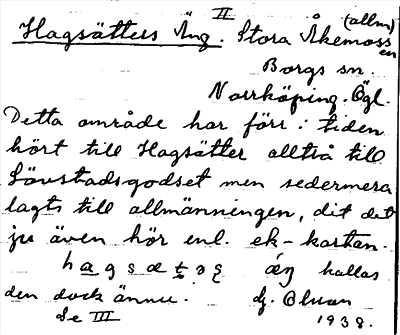 II
Hagsätters Äng. Stora Åkemossen (allm)
Borgs sn.
Norrköping. Ögl.
Detta område har förr i tiden
hört till Hagsätter alltså till
Lövstadsgodset men sedermera
lagts till allmänningen, dit det
ju även hör enl. ek-kartan.
kallas
den dock ännu. Hj. Olman
Se III 1938.